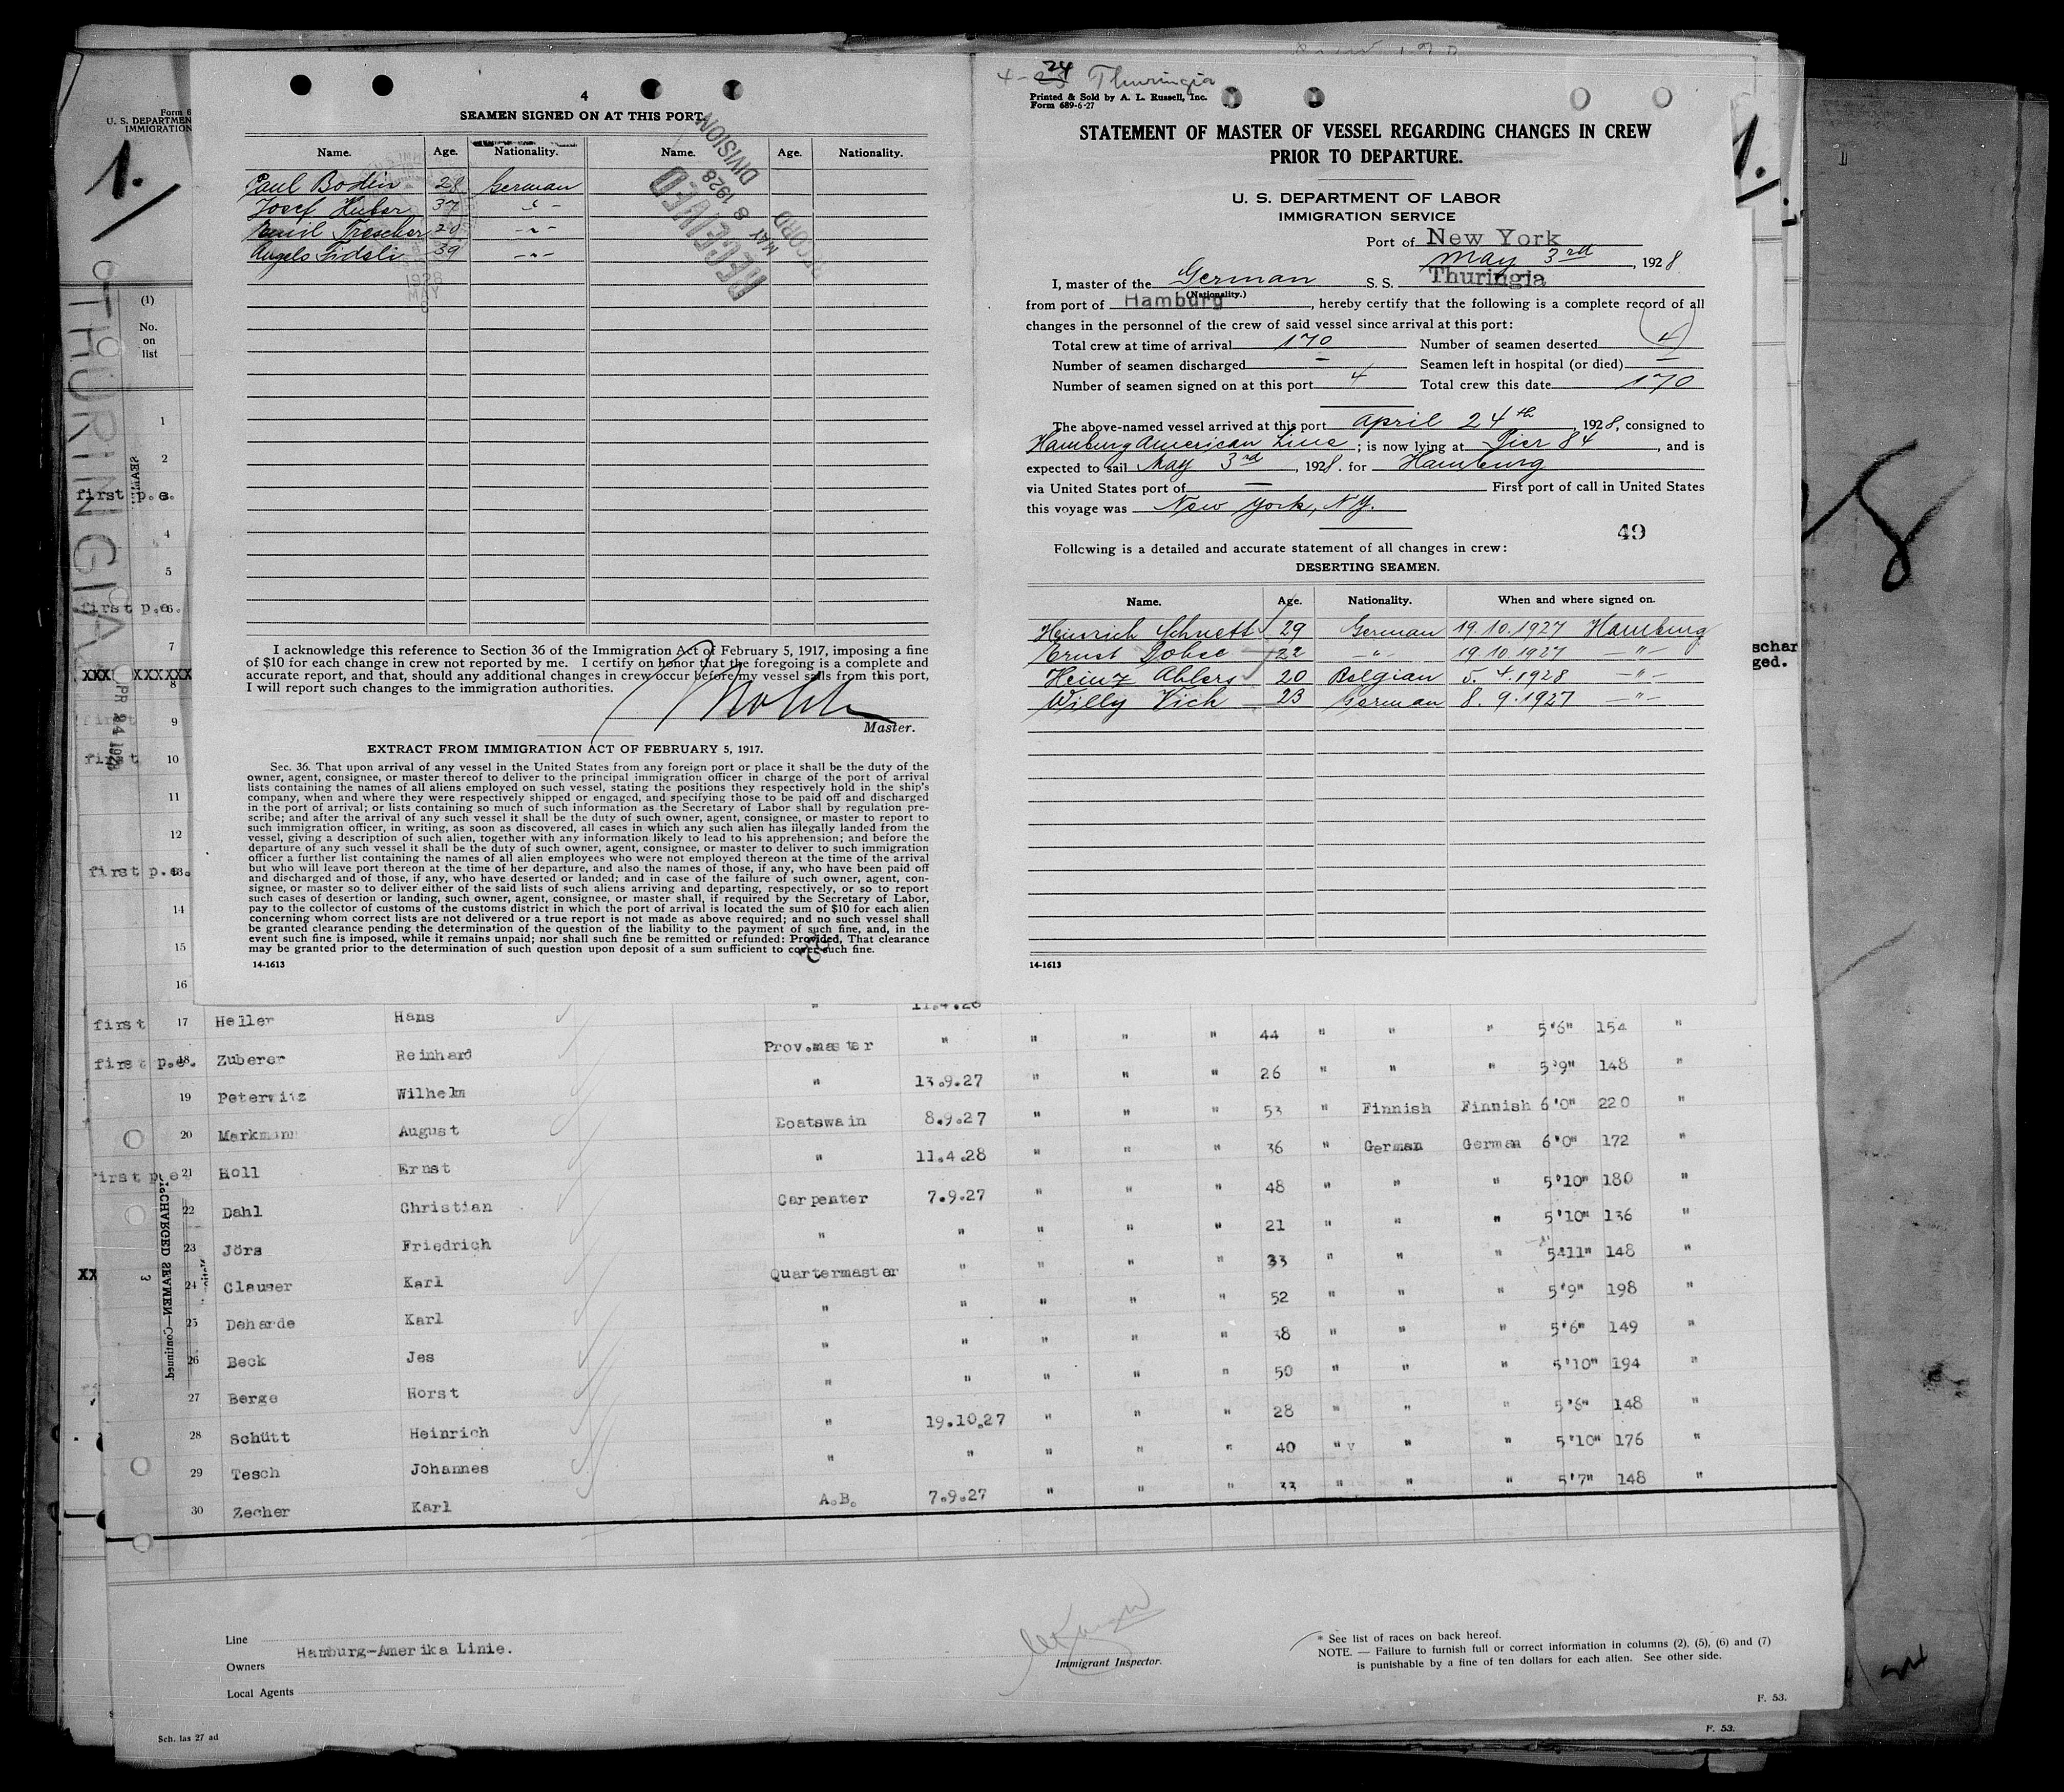 4
SEAMEN SIGNED ON AT THIS PORT.
Name. Age. Nationality. Name. Age. Nationality.
Paul Bodin 28 German
Josef Huber 37 " -
Emil Trescher 20 -"-
Angelo Fideli 39 -"-
RECEIVED
MAY 8 1928
RECORD DIVISION
1928
MAY
I acknowledge this reference to Section 36 of the Immigration Act of February 5, 1917, imposing a fine
of $10 for each change in crew not reported by me. I certify on honor that the foregoing is a complete and
accurate report, and that, should any additional changes in crew occur before my vessel sails from this port,
I will report such changes to the immigration authorities.
Master.
EXTRACT FROM IMMIGRATION ACT OF FEBRUARY 5, 1917.
Sec. 36. That upon arrival of any vessel in the United States from any foreign port or place it shall be the duty of the
owner, agent, consignee, or master thereof to deliver to the principal immigration officer in charge of the port of arrival
lists containing the names of all aliens employed on such vessel, stating the positions they respectively hold in the ship's
company, when and where they were respectively shipped or engaged, and specifying those to be paid off and discharged
in the port of arrival; or lists containing so much of such information as the Secretary of Labor shall by regulation pre-
scribe; and after the arrival of any such vessel it shall be the duty of such owner, agent, consignee, or master to report to
such immigration officer, in writing, as soon as discovered, all cases in which any such alien has illegally landed from the
vessel, giving a description of such alien, together with any information likely to lead to his apprehension; and before the
departure of any such vessel it shall be the duty of such owner, agent, consignee, or master to deliver to such immigration
officer a further list containing the names of all alien employees who were not employed thereon at the time of the arrival
but who will leave port thereon at the time of her departure, and also the names of those, if any, who have been paid off
and discharged and of those, if any, who have deserted or landed; and in case of the failure of such owner, agent, con-
signee, or master so to deliver either of the said lists of such aliens arriving and departing, respectively, or so to report
such cases of desertion or landing, such owner, agent, consignee, or master shall, if required by the Secretary of Labor,
pay to the collector of customs of the customs district in which the port of arrival is located the sum of $10 for each alien
concerning whom correct lists are not delivered or a true report is not made as above required; and no such vessel shall
be granted clearance pending the determination of the question of the liability to the payment of such fine, and, in the
event such fine is imposed, while it remains unpaid; nor shall such fine be remitted or refunded: Provided, That clearance
may be granted prior to the determination of such question upon deposit of a sum sufficient to cover such fine.
14-1613
4-24 Thuringia
Printed & Sold by A. L. Russell, Inc.
Form 689-6-27
STATEMENT OF MASTER OF VESSEL REGARDING CHANGES IN CREW
PRIOR TO DEPARTURE.
U. S. DEPARTMENT OF LABOR
IMMIGRATION SERVICE
Port of New York
May 3rd, 1928
I, master of the German S. S. Thuringia
(Nationality.)
from port of Hamburg, hereby certify that the following is a complete record of all
changes in the personnel of the crew of said vessel since arrival at this port:
Total crew at time of arrival 170 Number of seamen deserted 4
Number of seamen discharged - Seamen left in hospital (or died) -
Number of seamen signed on at this port 4 Total crew this date 170
The above-named vessel arrived at this port April 24th, 1928, consigned to
Hamburg American Line; is now lying at Pier 84, and is
expected to sail May 3rd, 1928. for Hamburg
via United States port of - First port of call in United States
this voyage was New York, NY.
49
Following is a detailed and accurate statement of all changes in crew:
DESERTING SEAMEN.
Name. Age. Nationality. When and where signed on.
Heinrich Schuett 29 German 19.10.1927 Hamburg
Ernst Dobse 22 -"- 19.10.1927 -"-
Heinz Ahlers 20 Belgian 5.4.1928 -"-
Willy Vich 23 German 8.9.1927 -"-
14-1613
Form 6
U. S. DEPARTMEN
IMMIGRATION
1.
1.
THURINGIA
APR 24 1928
(1)
No.
on
list
1
2
first p.e.
4
5
first p.e. 6.
7
XXX XXXXXX
8
9
first 10
11
12
first p.e. 13.
14
15
16
schar
ged.
11.4.28
first 17 Heller Hans " " " " 44 " " " 5'6" 154 "
first p.e. 18. Zuberer Reinhard Prov.master " " " " 26 " " " 5'9" 148 "
19 Peterwitz Wilhelm " 13.9.27 " " " 53 " Finnish Finnish 6'0" 220 "
20 Markmann August Boatswain 8.9.27 " " " 36 " German German 6'0" 172 "
first p.e 21 Holl Ernst " 11.4.28 " " " 48 " " " 5'10" 180 "
22 Dahl Christian Carpenter 7.9.27 " " " 21 " " " 5'10" 136 "
23 Jörs Friedrich " " " " " 33 " " " 5'11" 148 "
XX 24 Clauser Karl Quartermaster " " " " 52 " " " 5'9" 198 "
25 Deharde Karl " " " " " 38 " " " 5'6" 149 "
26 Beck Jes " " " " " 50 " " " 5'10" 194 "
27 Berge Horst " " " " " 28 " " " 5'6" 148 "
28 Schütt Heinrich " 19.10.27 " " " 40 " " " 5'10" 176 "
29 Tesch Johannes " " " " " 33 " " " 5'7" 148 "
30 Zecher Karl A.B. 7.9.27 " " "
3
DISCHARGED SEAMEN—Continued.
Line
Hamburg-Amerika Linie.
Owners
Local Agents
Immigrant Inspector.
* See list of races on back hereof.
NOTE. — Failure to furnish full or correct information in columns (2), (5), (6) and (7)
is punishable by a fine of ten dollars for each alien. See other side.
F. 53.
F. 53.
Sch. las 27 ad